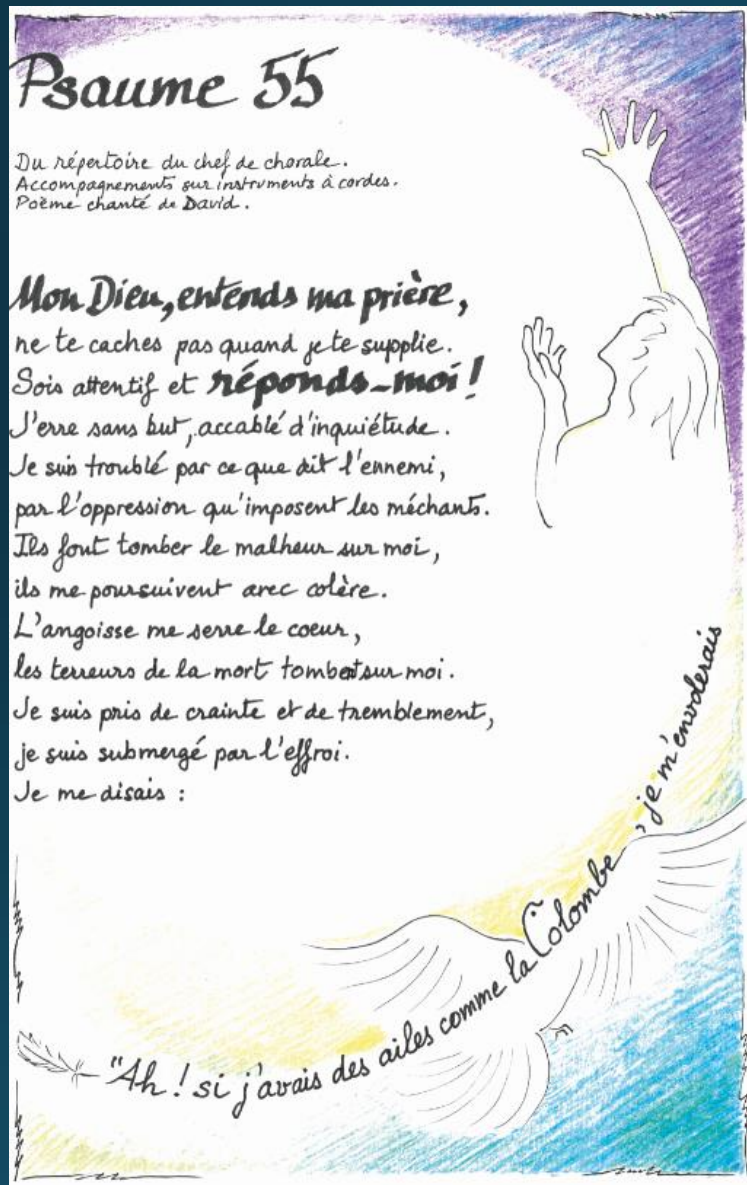 Psaume 55
Du répertoire du chef de chorale.
Accompagnements sur instruments à cordes.
Poème chanté de David.
Mon Dieu, entends ma prière,
ne te caches pas quand je te supplie.
Sois attentif et réponds-moi!
J'erre sans but, accablé d'inquiétude.
Je suis troublé par ce que dit l'ennemi,
par l'oppression qu'imposent les méchants.
Ils font tomber le malheur sur moi,
ils me poursuivent avec colère.
L'angoisse me serre le coeur,
les terreurs de la mort tombent sur moi.
Je suis pris de crainte et de tremblement,
je suis submergé par l'effroi.
Je me disais :
"Ah ! si j'avais des ailes comme la Colombe, je m'envolerais